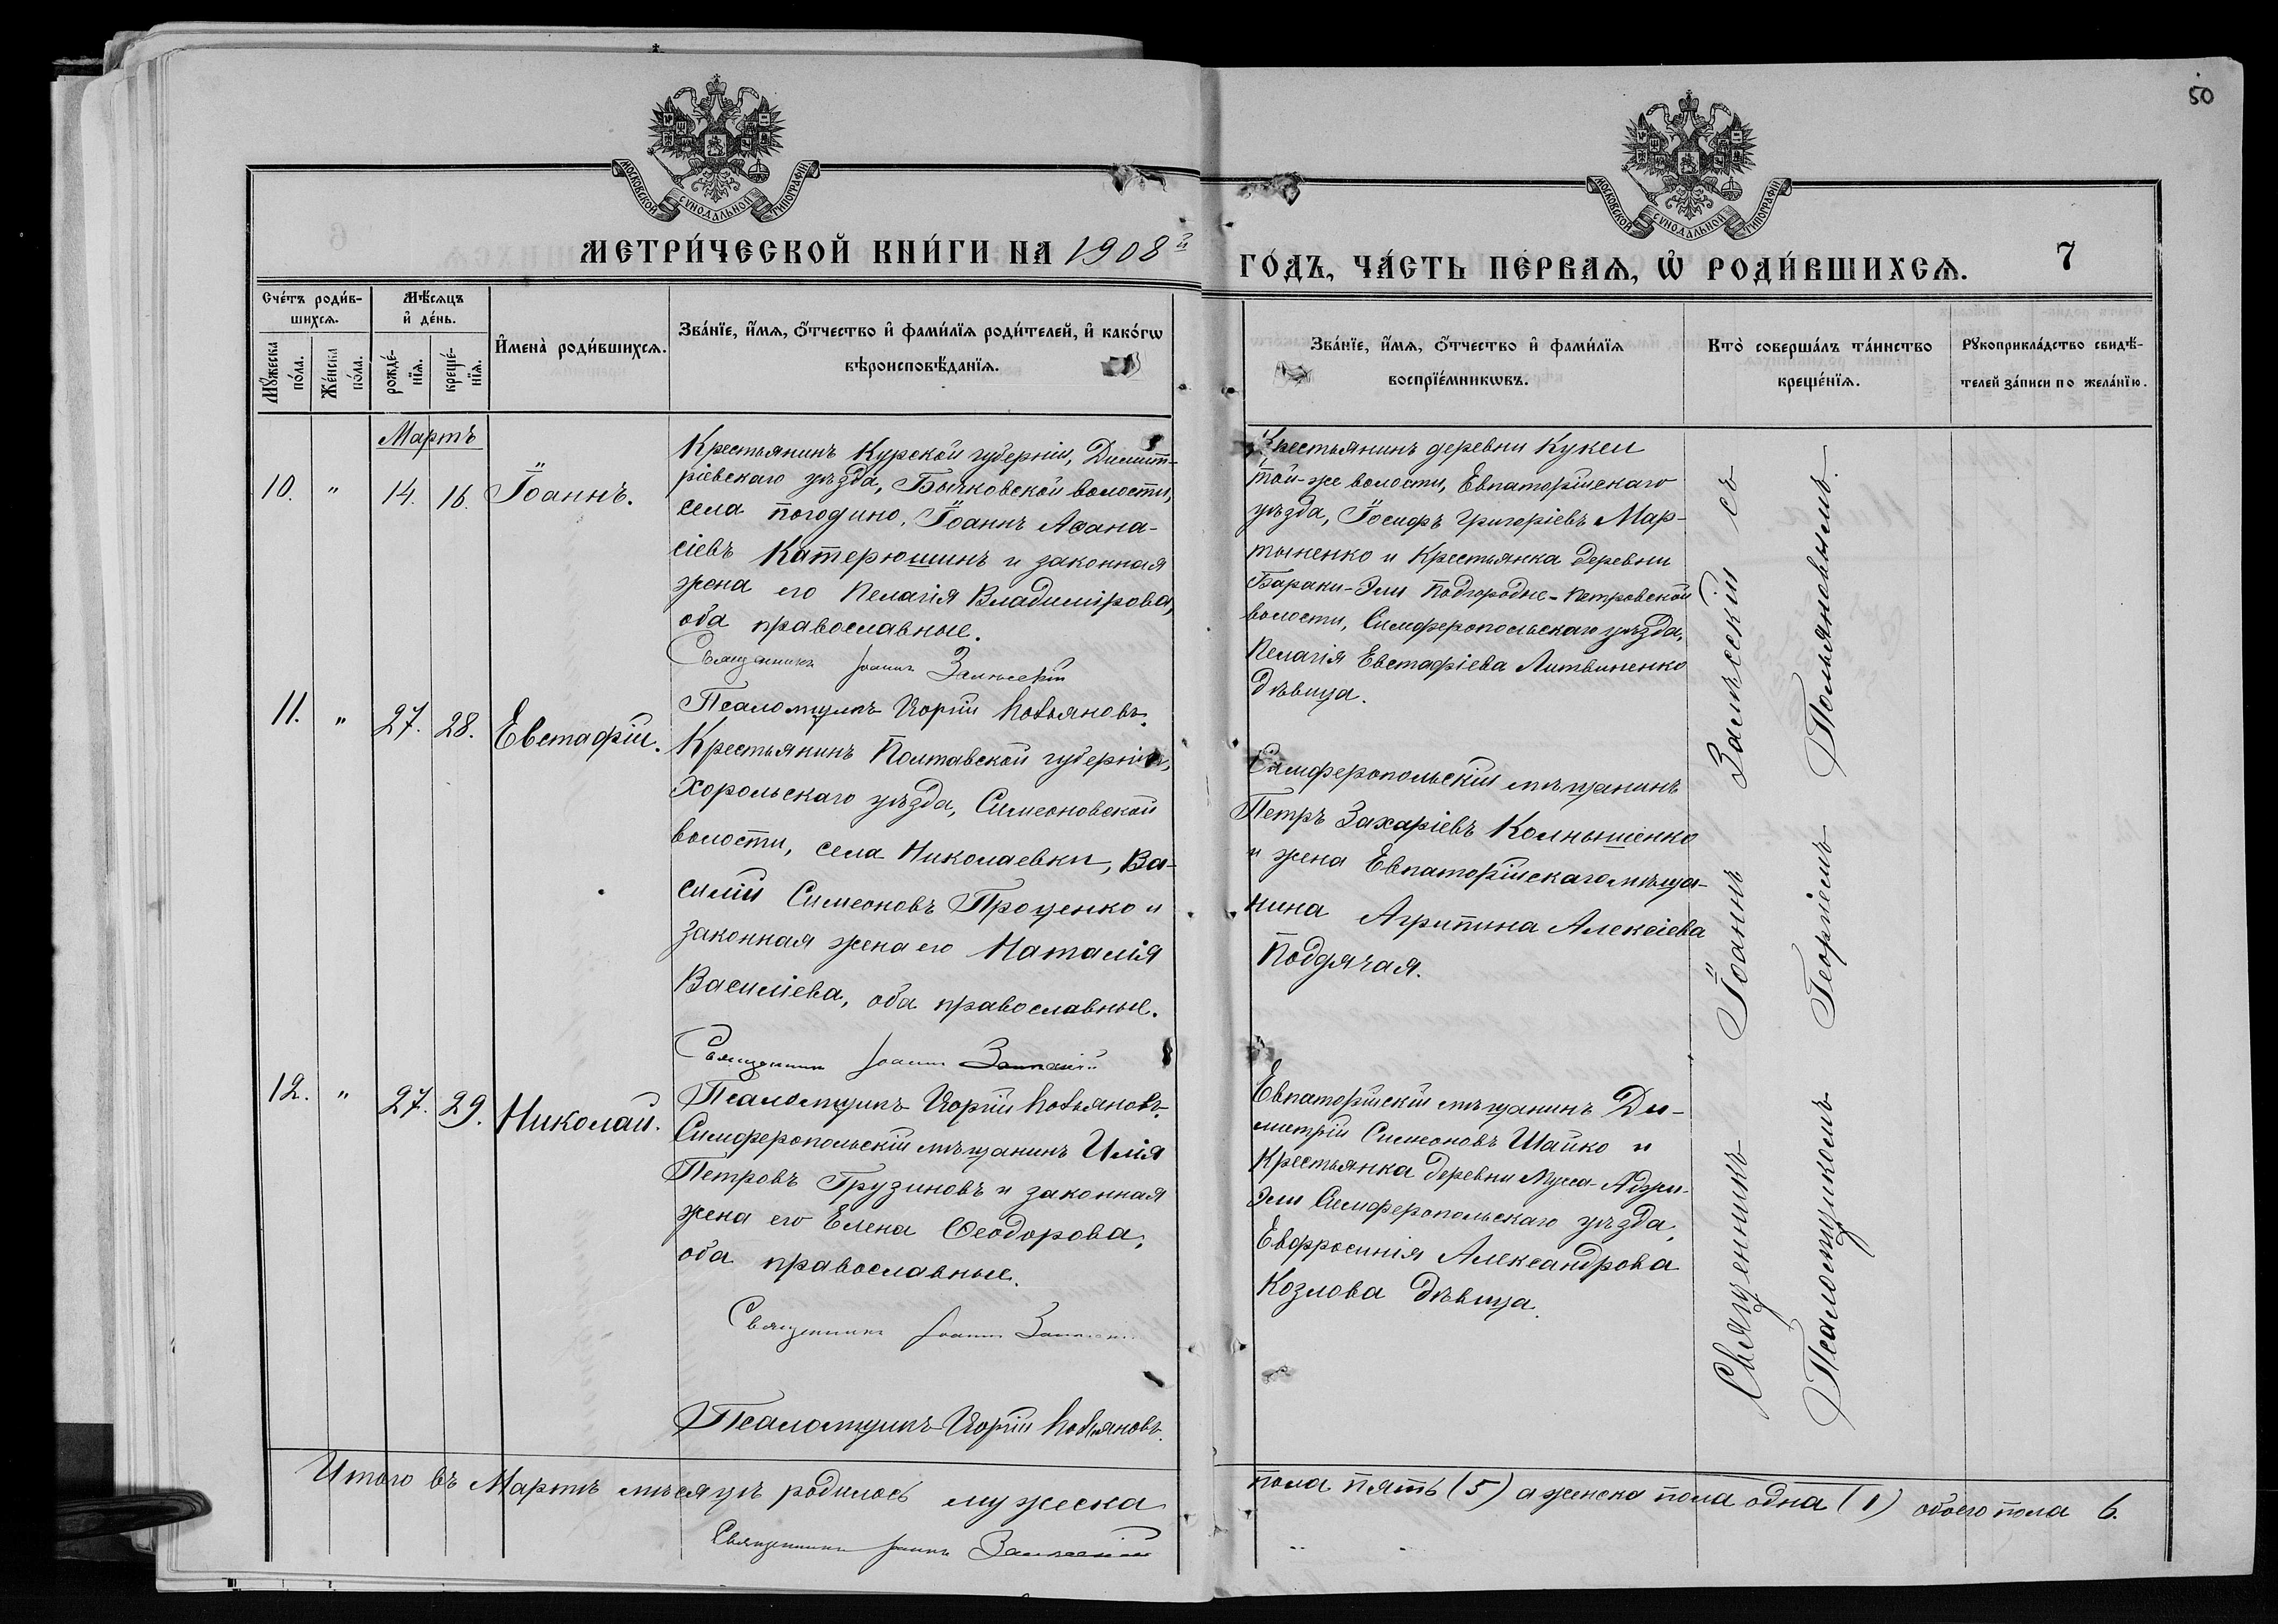 50
МОСКОВСКОЙ СѴНОДАЛЬНОЙ ТИПОГРАФІИ.
МОСКОВСКОЙ СѴНОДАЛЬНОЙ ТИПОГРАФІИ.
МЕТРИ́ЧЕСКОЙ КНИ́ГИ НА 1908й
ГО́ДЪ, ЧА́СТЬ ПЕ́РВАѦ, Ѽ РОДИ́ВШИХСѦ.
7
Сче́тъ роди́в-
шихсѧ.
Мѣ́сѧцъ
и҆ де́нь.
Мꙋ́жеска
по́ла.
Же́нска
по́ла.
рожде́-
нїѧ.
креще́-
нїѧ.
И҆мена̀ роди́вшихсѧ.
Зва́нїе, и҆́мѧ, ѻ҆́тчество и҆ фами́лїѧ роди́телей, и҆ како́гѡ
вѣроисповѣ́данїѧ.
Зва́нїе, и҆́мѧ, ѻ҆́тчество и҆ фами́лїѧ
воспрїе́мникѡвъ.
Кто̀ соверша́лъ та́инство
креще́нїѧ.
Рꙋкоприкла́дство свидѣ́-
телей за́писи по жела́нїю.
Мартъ
10. " 14. 16. Іоаннъ.
Крестьянинъ Курской губерніи, Димит-
ріевскаго уѣзда, Бычковской волости,
села Погодино, Іоаннъ Аѳана-
сіевъ Катерюшинъ и законная
жена его Пелагія Владимірова,
оба православные.
Священникъ Іоаннъ Замѣсскій
Псаломщикъ
Крестьянинъ деревни Кукеи
той-же волости, Евпаторійскаго
уѣзда, Іосифъ Григоріевъ Мар-
тыненко и Крестьянка деревни
Бараки-Эли Подгородне-Петровской
волости, Симферопольскаго уѣзда,
Пелагія Евстафіева Литвиненко
дѣвица.
11. " 27. 28. Евстафій.
Крестьянинъ Полтавской губерніи,
Хорольскаго уѣзда, Симеоновской
волости, села Николаевки, Ва-
силій Симеоновъ Проценко и
законная жена его Наталія
Василіева, оба православные.
Священникъ Іоаннъ
Псаломщикъ
Симферопольскій мѣщанинъ
Петръ Захаріевъ Колнышенко
и жена Евпаторійскаго мѣща-
нина Агрипина Алексіева
Подгячая.
12. " 27. 29. Николай.
Симферопольскій мѣщанинъ Илія
Петровъ Грузиновъ и законная
жена его Елена Ѳеодорова,
оба православные.
Священникъ Іоаннъ
Псаломщикъ
Евпаторійскій мѣщанинъ Ди-
митрій Симеоновъ Шайко и
Крестьянка деревни Мусса-Аджи-
Эли Симферопольскаго уѣзда,
Евфросинія Александрова
Козлова дѣвица.
Священникъ Іоаннъ съ
Псаломщикомъ Георгіемъ
Итого въ Мартѣ мѣсяцѣ родилось мужеска
пола пять (5) а женска пола одна (1) обоего пола 6.
Священникъ Іоаннъ